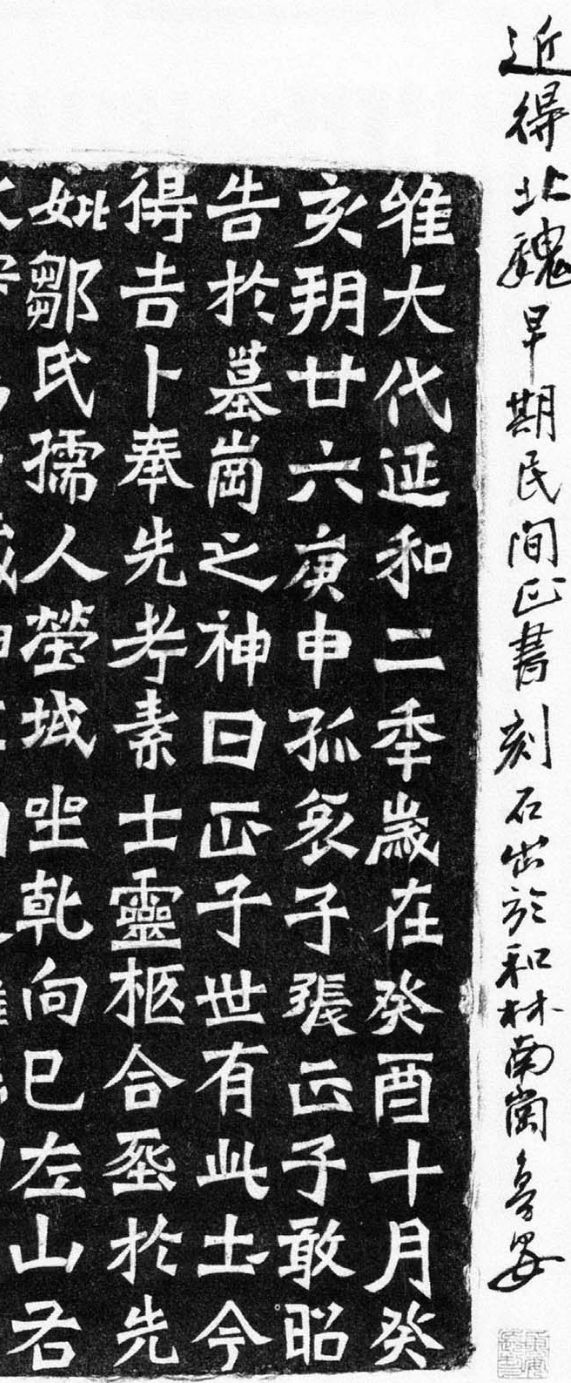 近得北魏早期民間正書刻石出於和林南崗
維大代延和二秊歲在癸酉十月癸
亥朔廿六庚申孤哀子張正子敢昭
告於墓崗之神曰正子世有此土今
得吉卜奉先考素士靈柩合葬於先
妣鄒氏孺人塋域坐乾向巳左山右